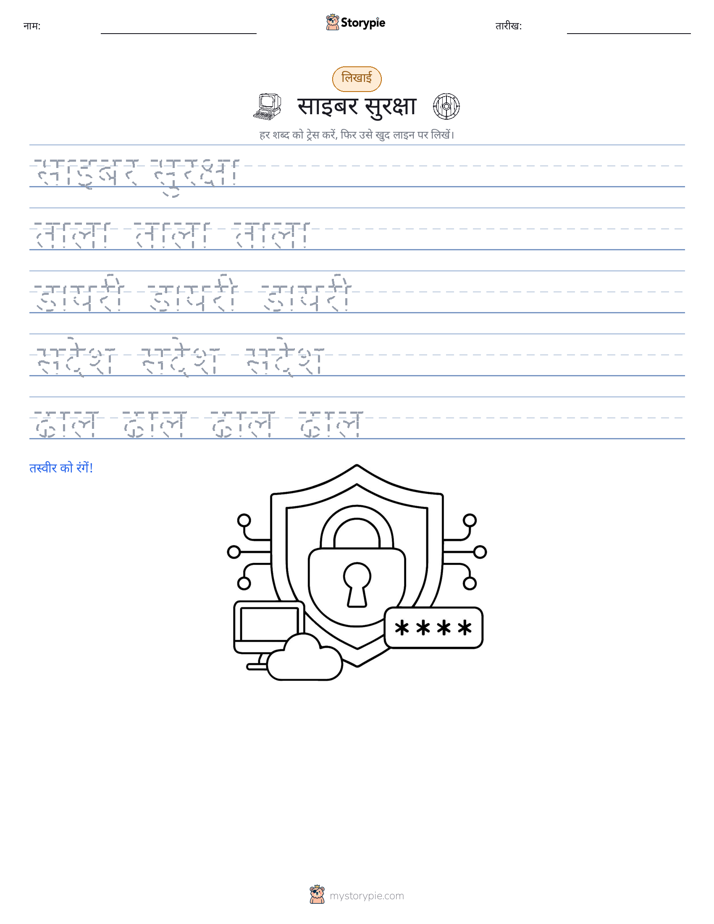 नाम:
Storypie
तारीख:
लिखाई
साइबर सुरक्षा
हर शब्द को ट्रेस करें, फिर उसे खुद लाइन पर लिखें।
साइबर सुरक्षा
ताला ताला ताला
डायरी डायरी डायरी
संदेश संदेश संदेश
ढाल ढाल ढाल ढाल
तस्वीर को रंगें!
****
mystorypie.com